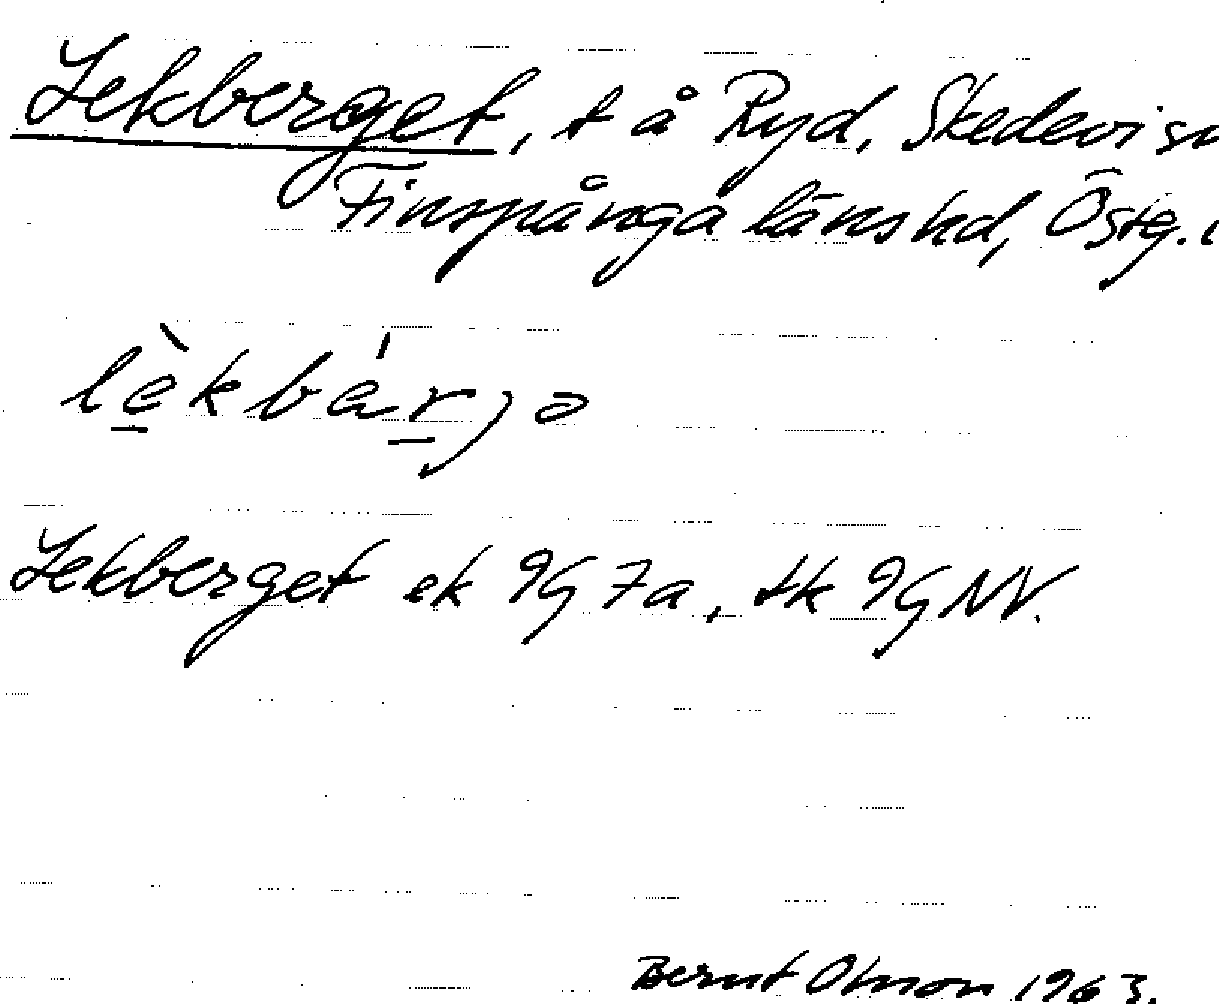 Lekberget, t å Ryd, Skedevi sn
Finspånga länshd, Östg. l
lèkbárjə
Lekberget ek 9G 7a, tk 9G NV.
Bernt Olsson 1963.